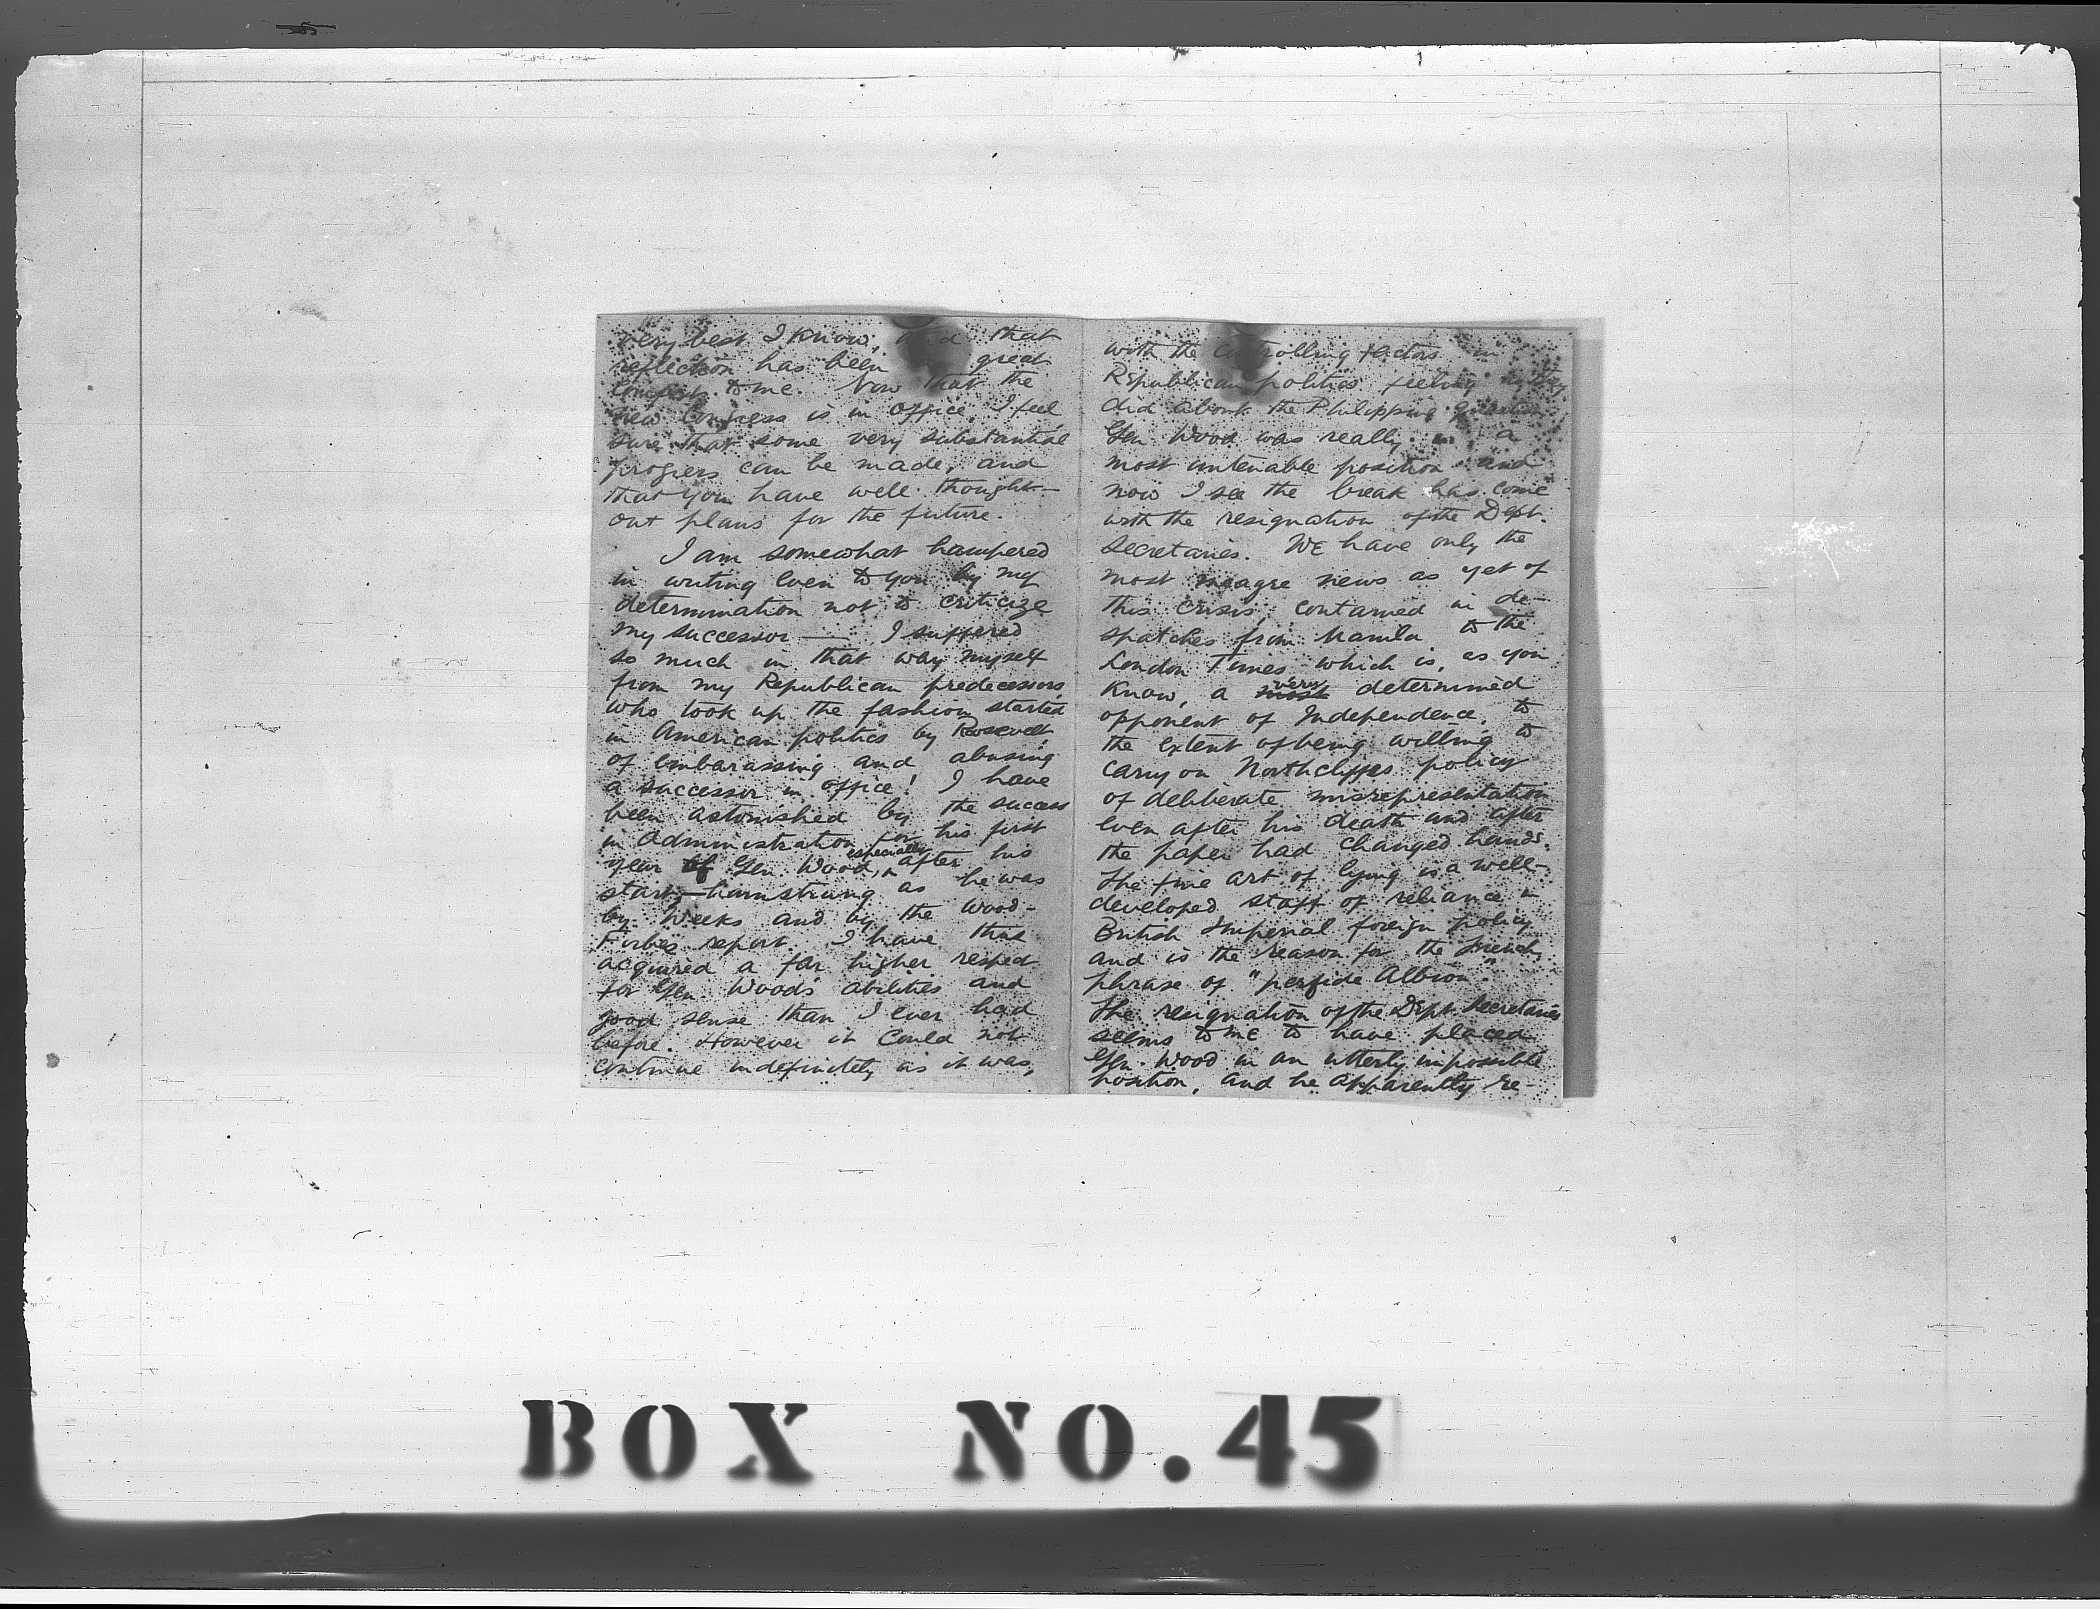 very best I know, and that
reflection has been a great
comfort to me. Now that the
new Congress is in office, I feel
sure that some very substantial
progress can be made, and
that you have well thought-
out plans for the future.
I am somewhat hampered
in writing even to you by my
determination not to criticize
my successor — I suffered
so much in that way myself
from my Republican predecessors
who took up the fashion started
in American politics by Roosevelt
of embarassing and abusing
a successor in office! I have
been astonished by the success
in administration for his first
year of Gen. Wood, especially after his
start, — hamstrung as he was
by Weeks and by the Wood-
Forbes report. I have thus
acquired a far higher respect
for Gen. Wood's abilities and
good sense than I ever had
before. However it could not
continue indefinitely as it was,
with the controlling factors in
Republican politics feeling as they
did about the Philippine question
Gen Wood was really in a
most untenable position and
now I see the break has come
with the resignation of the Dept.
Secretaries. We have only the
most meagre news as yet of
this crisis, contained in de-
spatches from Manila to the
London Times which is, as you
know, a most very determined
opponent of Independence, to
the extent of being willing to
carry on Northcliffes policy
of deliberate misrepresentation
even after his death and after
the paper had changed hands.
The fine art of lying is a well-
developed staff of reliance in
British Imperial foreign policy
and is the reason for the French
phrase of "perfide Albion."
The resignation of the Dept. Secretaries
seems to me to have placed
Gen. Wood in an utterly impossible
position, and he apparently re-
BOX NO. 45